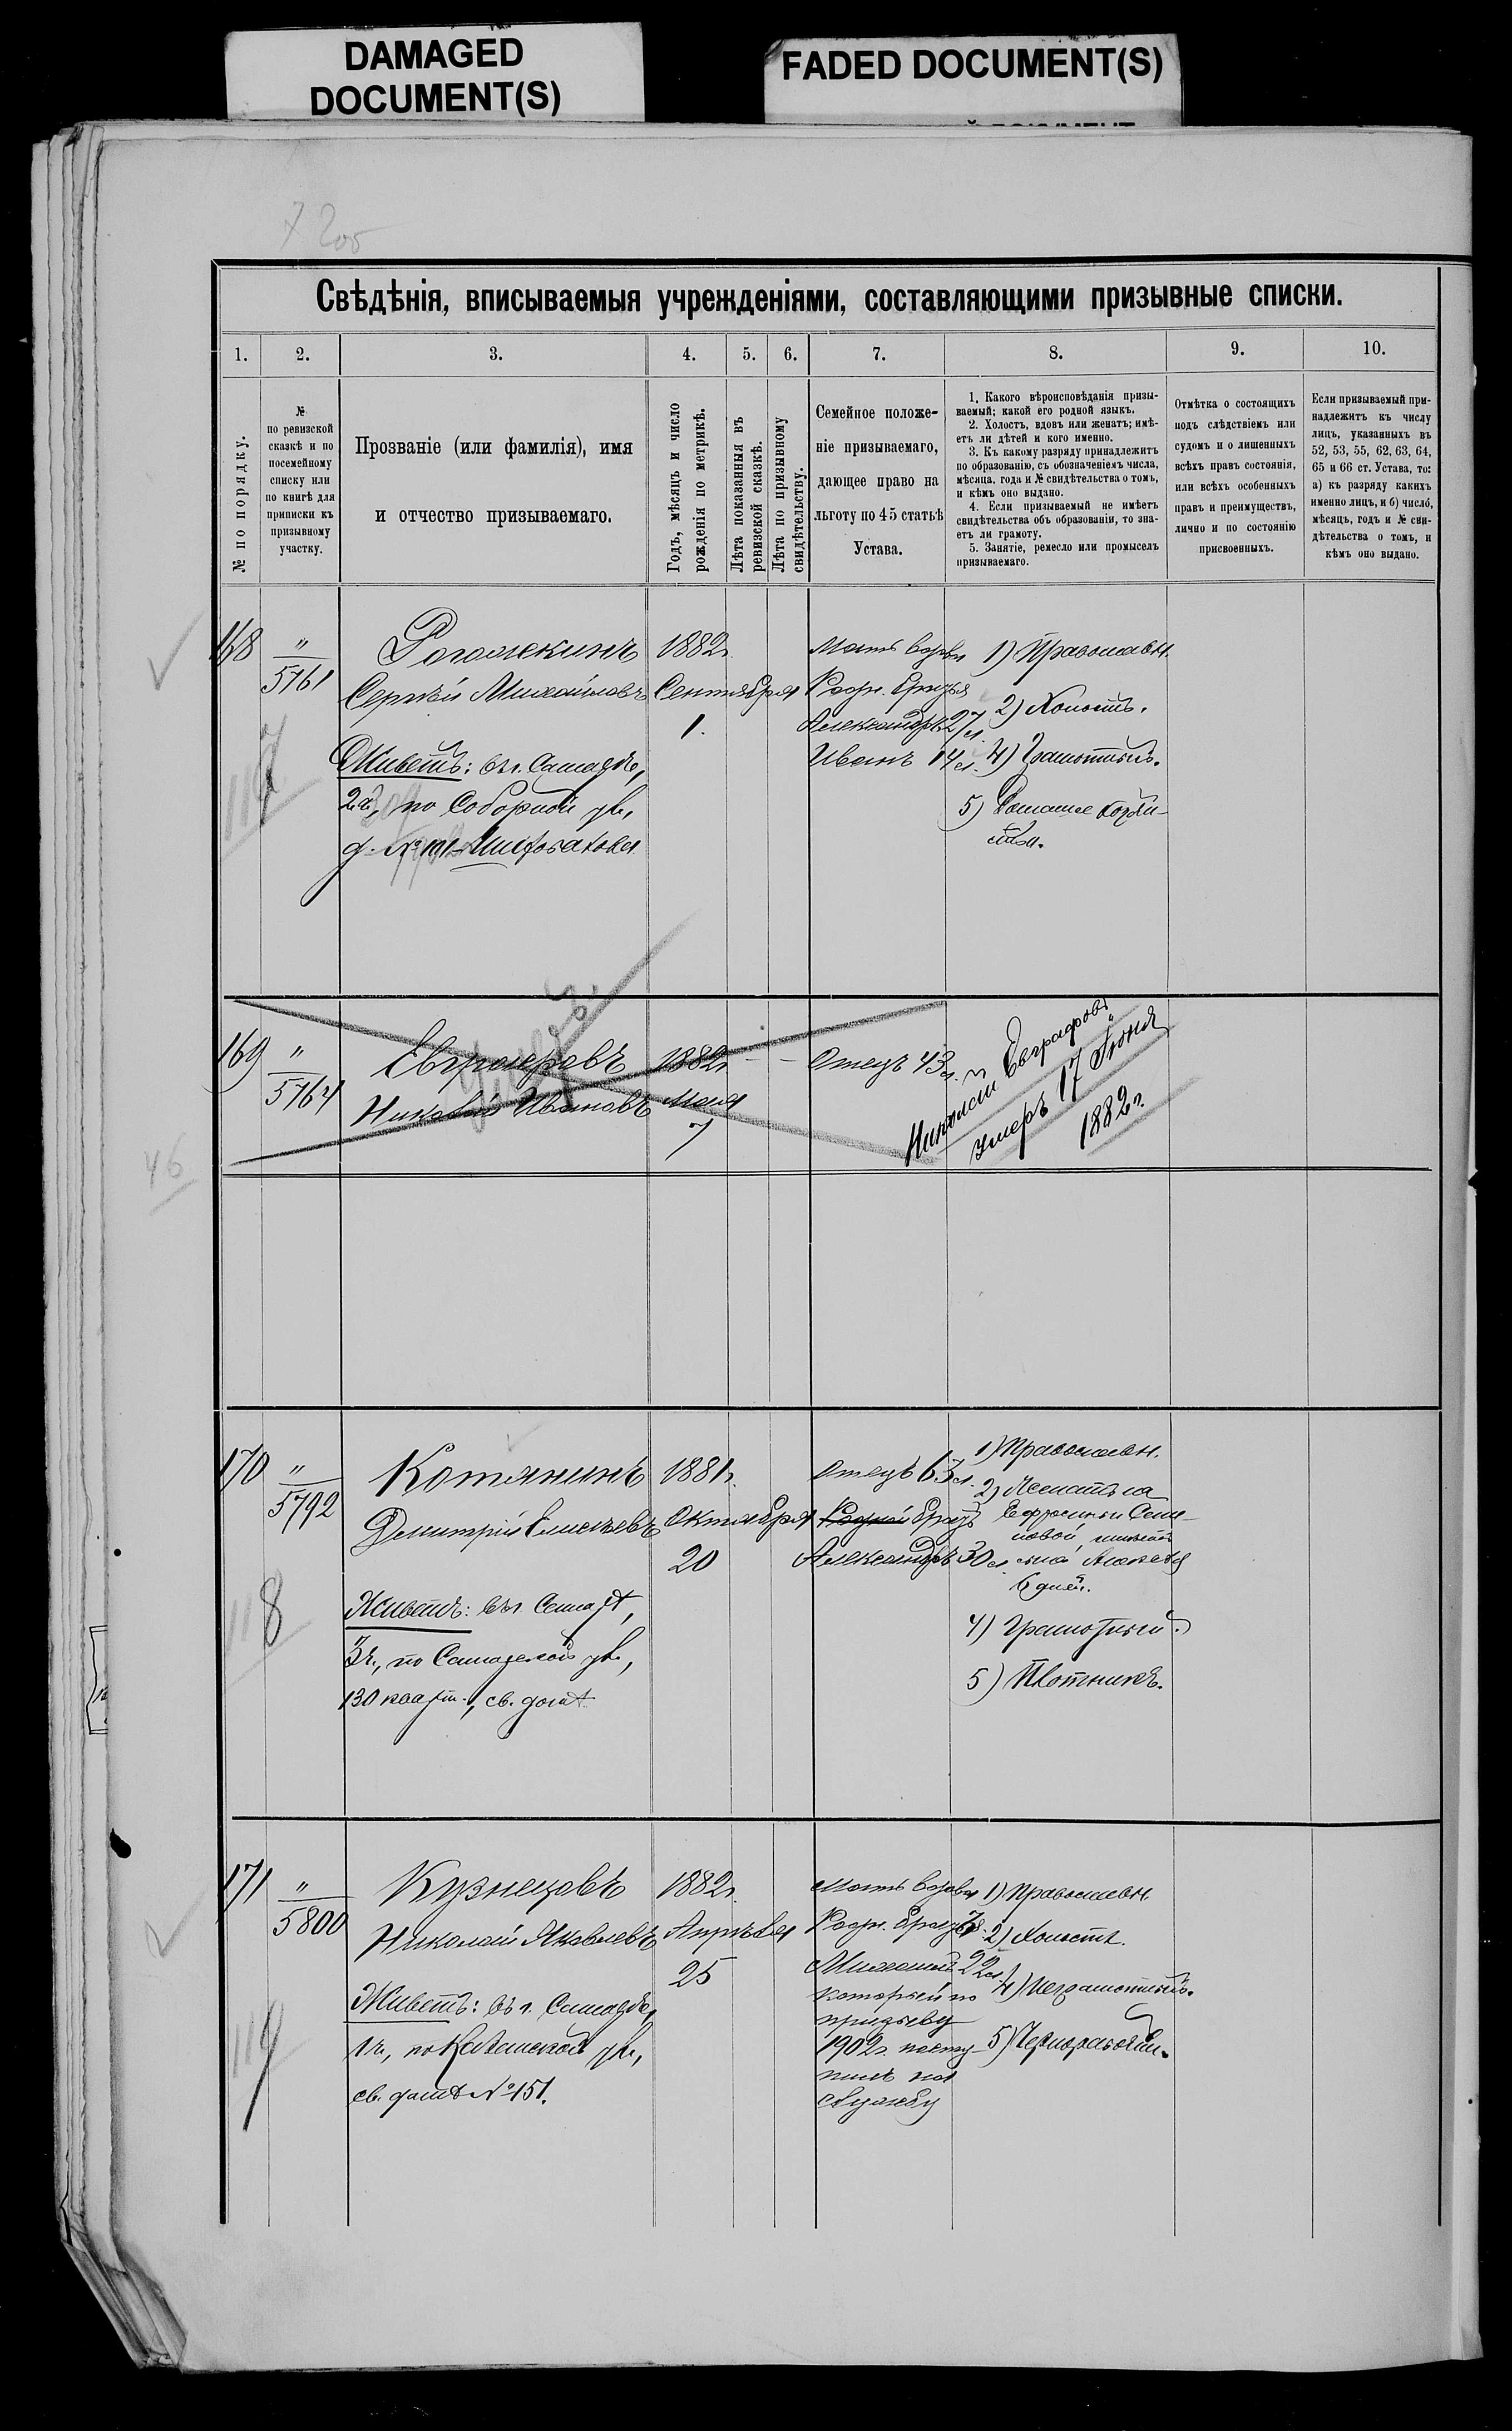 DAMAGED
DOCUMENT(S)
FADED DOCUMENT(S)
Свѣдѣнія, вписываемыя учрежденіями, составляющими призывные списки.
1.
2.
3.
4.
5.
6.
7.
8.
9.
10.
№ по порядку.
№
по ревизской
сказкѣ и по
посемейному
списку или
по книгѣ для
приписки къ
призывному
участку.
Прозваніе (или фамилія), имя
и отчество призываемаго.
Годъ, мѣсяцъ и число
рожденія по метрикѣ.
Лѣта показанныя въ
ревизской сказкѣ.
Лѣта по призывному
свидѣтельству.
Семейное положе-
ніе призываемаго,
дающее право на
льготу по 45 статьѣ
Устава.
1. Какого вѣроисповѣданія призы-
ваемый; какой его родной языкъ.
2. Холостъ, вдовъ или женатъ; имѣ-
етъ ли дѣтей и кого именно.
3. Къ какому разряду принадлежитъ
по образованію, съ обозначеніемъ числа,
мѣсяца, года и № свидѣтельства о томъ,
и кѣмъ оно выдано.
4. Если призываемый не имѣетъ
свидѣтельства объ образованіи, то зна-
етъ ли грамоту.
5. Занятіе, ремесло или промыселъ
призываемаго.
Отмѣтка о состоящихъ
подъ слѣдствіемъ или
судомъ и о лишенныхъ
всѣхъ правъ состоянія,
или всѣхъ особенныхъ
правъ и преимуществъ,
лично и по состоянію
присвоенныхъ.
Если призываемый при-
надлежитъ къ числу
лицъ, указанныхъ въ
52, 53, 55, 62, 63, 64,
65 и 66 ст. Устава, то:
а) къ разряду какихъ
именно лицъ, и б) число,
мѣсяцъ, годъ и № сви-
дѣтельства о томъ, и
кѣмъ оно выдано.
168
"
5761
Рогожкинъ
Сергѣй Михайловъ
Живетъ: въ г. Самарѣ,
2 ч., по Соборной ул.,
д. №
1882 г.
Сентября
1.
Мать вдова
Родн. братья
Александръ 27 л.
Иванъ 14 л.
1) Православн.
2) Холостъ.
4) Грамотный.
5) Домашнее хозяй-
ство.
169
"
5764
Евграфовъ
Николай Ивановъ
1882 г.
Мая
7
Отецъ 43 л.
Николай Евграфовъ
умеръ 17 Іюня
1882 г.
46
170
"
5792
Котянинъ
Дмитрій Елисѣевъ
Живетъ: въ г. Самарѣ,
3 ч., по Самарской ул.,
130 кварт., св. домъ
1881 г.
Октября
20
Отецъ 63 л.
Родной братъ
Александръ 30 л.
1) Православн.
2) Женатъ на
Ефросиньи Семе-
новой, имѣетъ
сына Алексѣя
6 дней.
4) Грамотный.
5) Плотникъ.
171
"
5800
Кузнецовъ
Николай Яковлевъ
Живетъ: въ г. Самарѣ,
1 ч., по Казанской ул.,
св. домъ № 151.
1882 г.
Апрѣля
25
Мать вдова
Родн. братъ
Михаилъ 22 л.
который по
призыву
1902 г. посту-
пилъ на
службу
1) Православн.
2) Холостъ.
4) Неграмотный.
5) Чернорабочій.